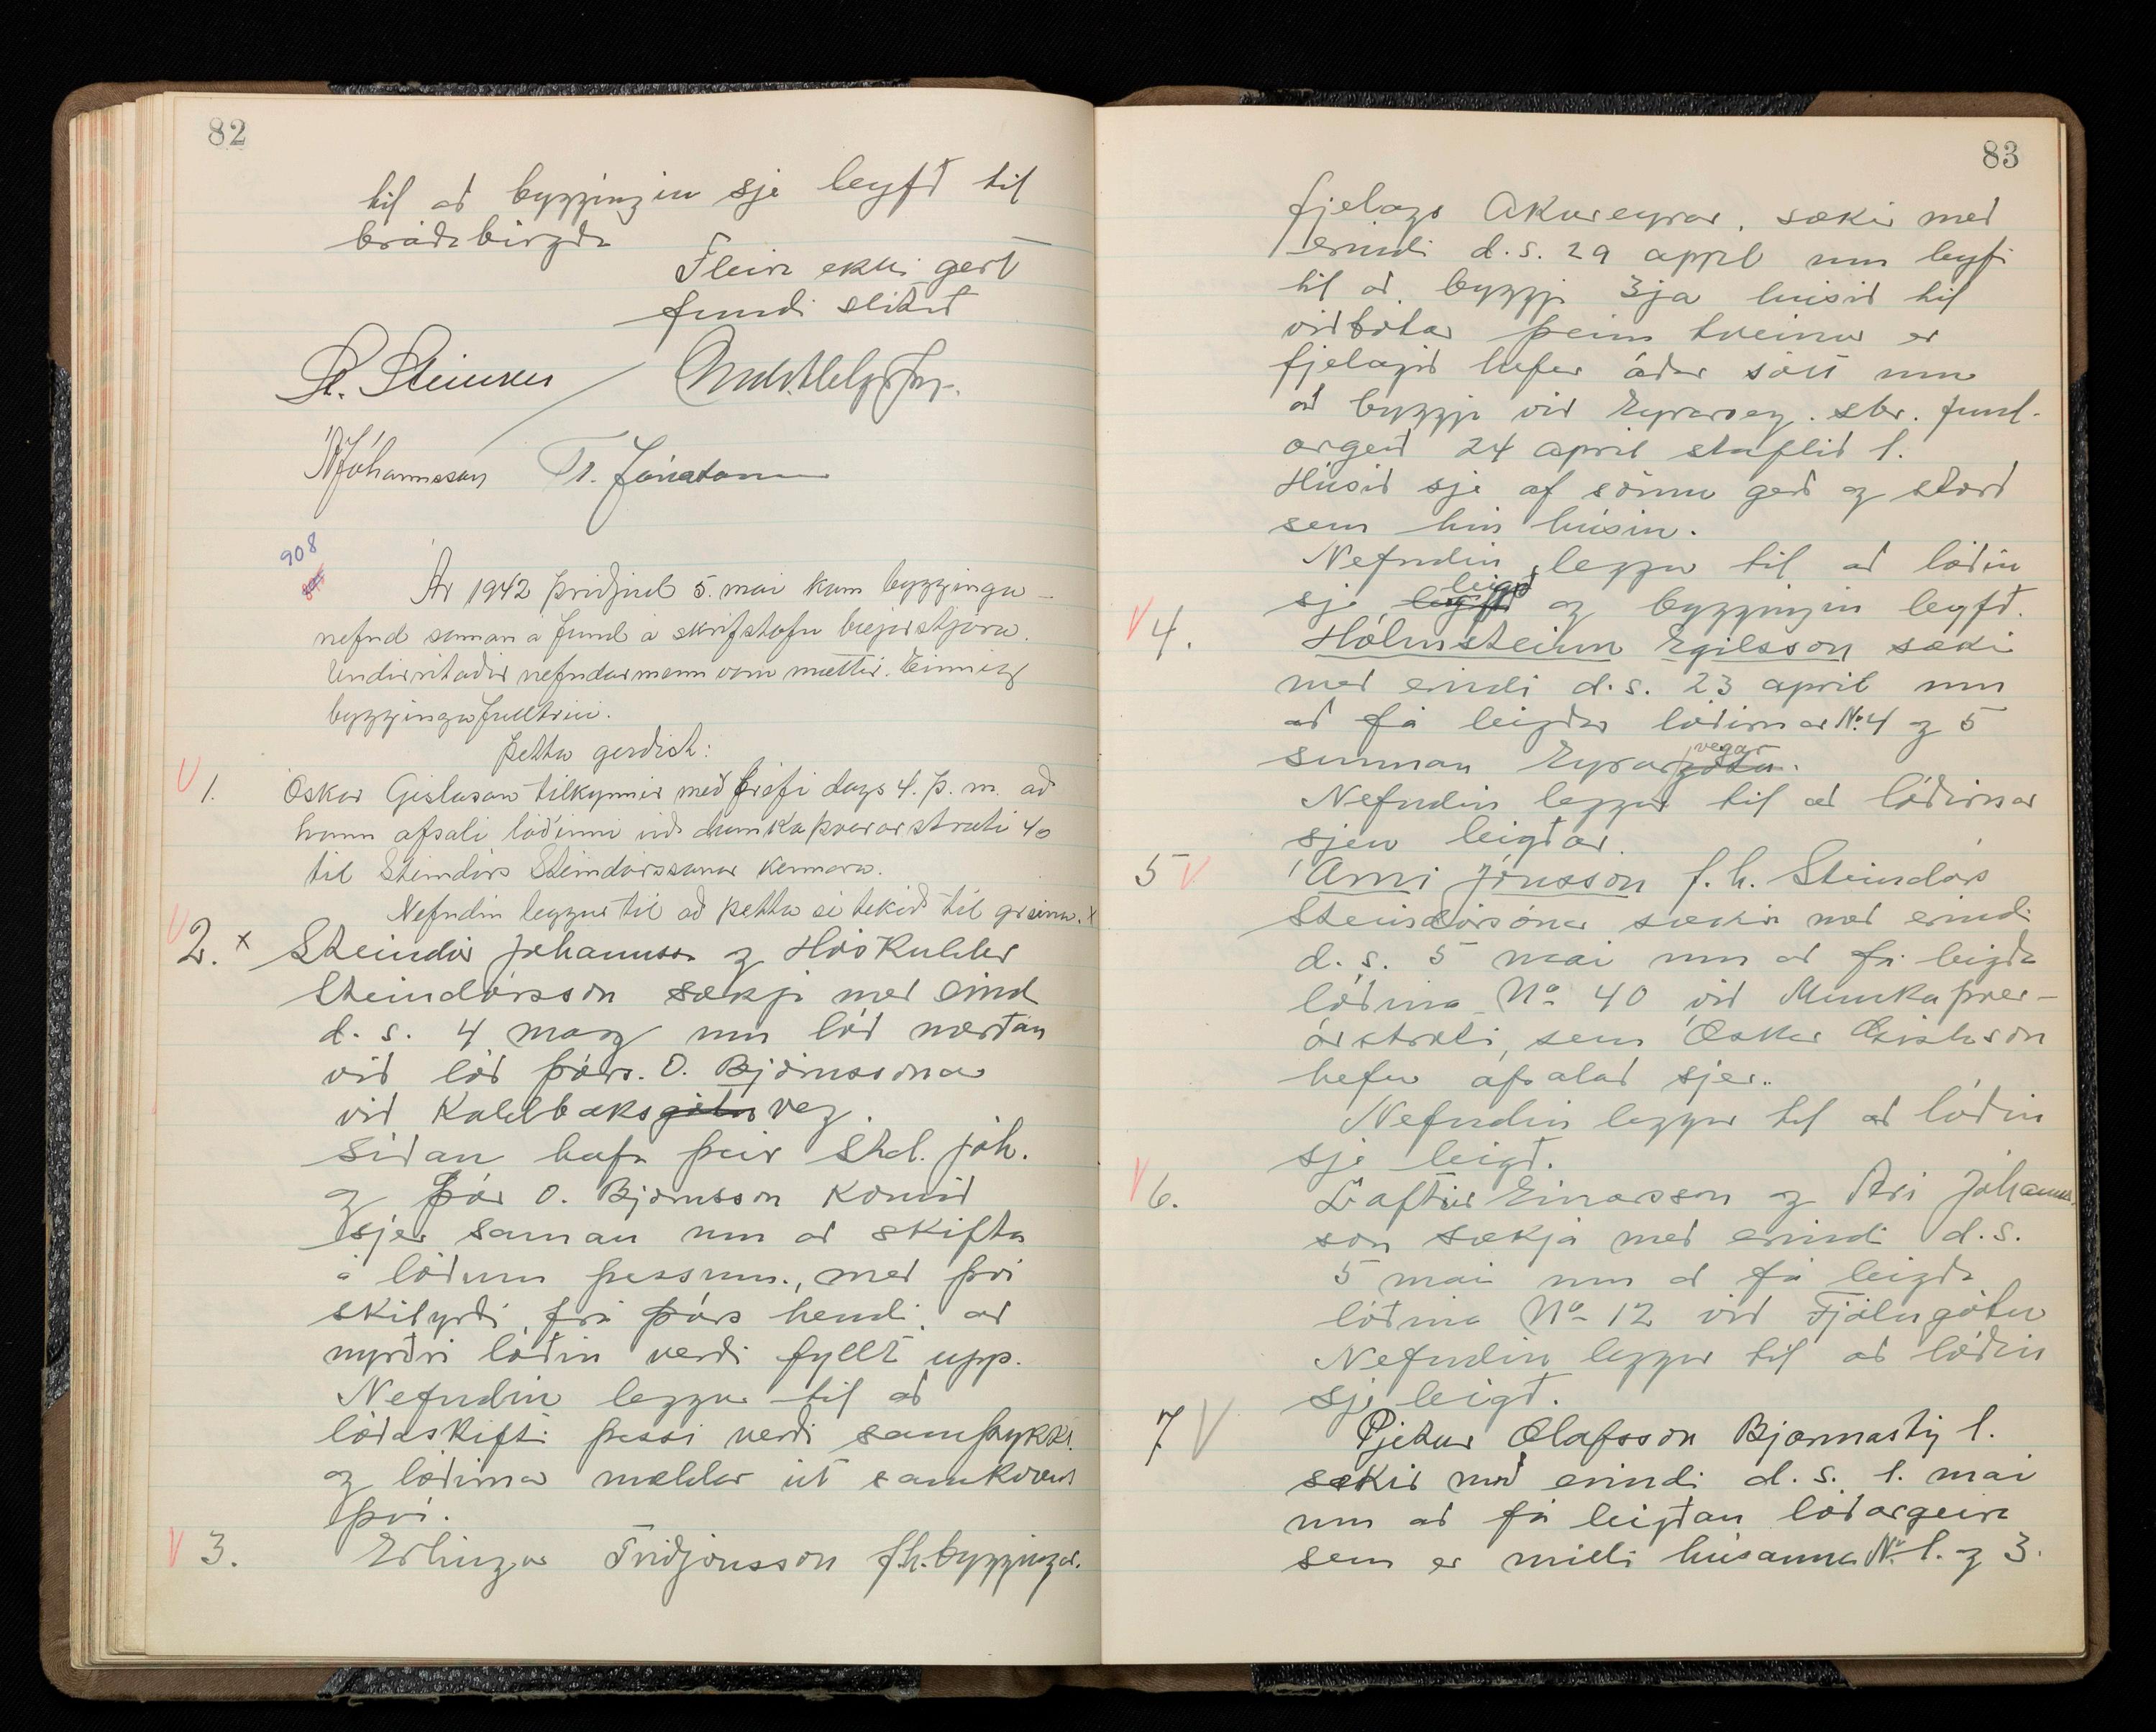 82
til að byggingin sje leyfð til
bráðabirgða
Fleira ekki gert
fundi slitið
St. Steinsen
AJóhannsson Tr. Jónatansson
908
Ár 1942 þriðjud 5. mai kom bygginga-
nefnd saman á fund á skrifstofu bæjarstjóra.
Undirritaðir nefndarmenn voru mættir. Einnig
byggingafulltrúi.
Þetta gerðist:
V 1. Óskar Gíslason tilkynnir með brefi dags 4. þ. m. að
hann afsali lóðinni við Munkaþverarstræti 40
til Steindórs Steindórssonar kennara.
Nefndin leggur til að þetta sé tekið til greina. x
V 2. x Steindór Johannsson og Höskuldur
Steindórsson sækja með erind
d. s. 4 maí um lóð norðan
við lóð Þórs. O. Björnssonar
við Kaldbaksgötu veg.
Síðan hafa þeir Std. Jóh.
og Þór O. Björnsson komið
sjer saman um að skifta
á lóðum þessum, með því
skilyrði frá Þórs hendi, að
nyrðri lóðin verði fyllt upp.
Nefndin leggur til að
lóðaskifti þessi verði samþykkt.
og lóðirnar mældar út samkvæmt
því.
V 3. Erlingur Friðjónsson f.h. byggingar-
83
fjelags Akureyrar, sækir með
erindi d.s. 29 april um leyfi
til að byggja 3ja húsið til
viðbótar þeim tveimur er
fjelagið hefur áður sótt um
að byggja við Eyrarveg. sbr. fund-
argerð 24 april staflið 1.
Húsið sje af sömu gerð og stærð
sem hin húsin.
Nefndin leggur til að lóðin
leigð
sje og byggingin leyfð.
V 4. Hólmsteinn Egilsson sækir
með erindi d.s. 23 april um
að fá leigðar lóðirnar No. 4 og 5
vegar
sunnan Eyrargötu.
Nefndin leggur til að lóðirnar
sjeu leigðar.
5 V Árni Jónsson f.h. Steindórs
Steindórsonar sækir með erindi
d. s. 5 mai um að fá leigða
lóðina No 40 við Munkaþver-
árstræti, sem Óskar Gíslason
hefur afsalað sjer.
Nefndin leggur til að lóðin
sje leigð.
V 6. Einarsson og Ari Jóhanns-
son sækja með erindi d.s.
5 mai um að fá leigða
lóðina No 12 við Fjólugötu
Nefndin leggur til að lóðin
sje leigð.
7 V Pjetur Ólafsson Bjarmastíg 1.
sækir með erindi d. s. 1. mai
um að fá leigðan lóðargeira
sem er milli húsanna No. 1. og 3.